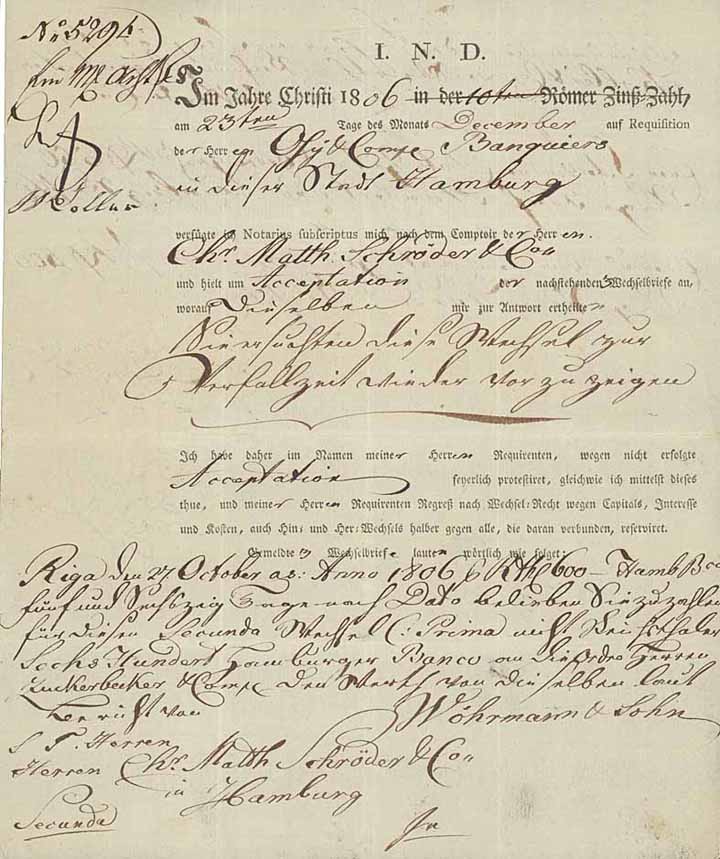 No 5294
I. N. D.
Im Jahre Christi 1806 in der 10ten Römer Zinß-Zahl,
am 23ten Tage des Monats December auf Requisition
der Herren & Compe Banquiers
in dieser Stadt Hamburg
verfügte ich Notarius subscriptus mich nach dem Comptoir der Herren.
Chr. Matth. Schröder & Co
und hielt um Acceptation der nachstehenden 3 Wechselbriefe an,
worauf Dieselben mir zur Antwort ertheilten
Sie ersuchten diese Wechsel zur
Verfallzeit wieder vor zu zeigen
Ich habe daher im Namen meiner Herren Requirenten, wegen nicht erfolgte
Acceptation feyerlich protestiret, gleichwie ich mittelst dieses
thue, und meiner Herren Requirenten Regreß nach Wechsel-Recht wegen Capitals, Interesse
und Kosten, auch Hin- und Her-Wechsels halber gegen alle, die daran verbunden, reserviret.
Gemeldte 3 Wechselbriefe lauten wörtlich wie folget:
Riga den 27 October a: Anno 1806 600 Hamb Bco
fünf und Sechszig Tage nach Dato belieben Sie zu zahlen
für diesen Secunda Wechsel Prima nicht
Sechs Hundert Hamburger Banco an die Ordre Herren
Zuckerbecker & Compe den Werth von Dieselben laut
Bericht von
Wöhrmann & Sohn
Herren
Herren Chr. Matth Schröder & Co
in Hamburg
Secunda